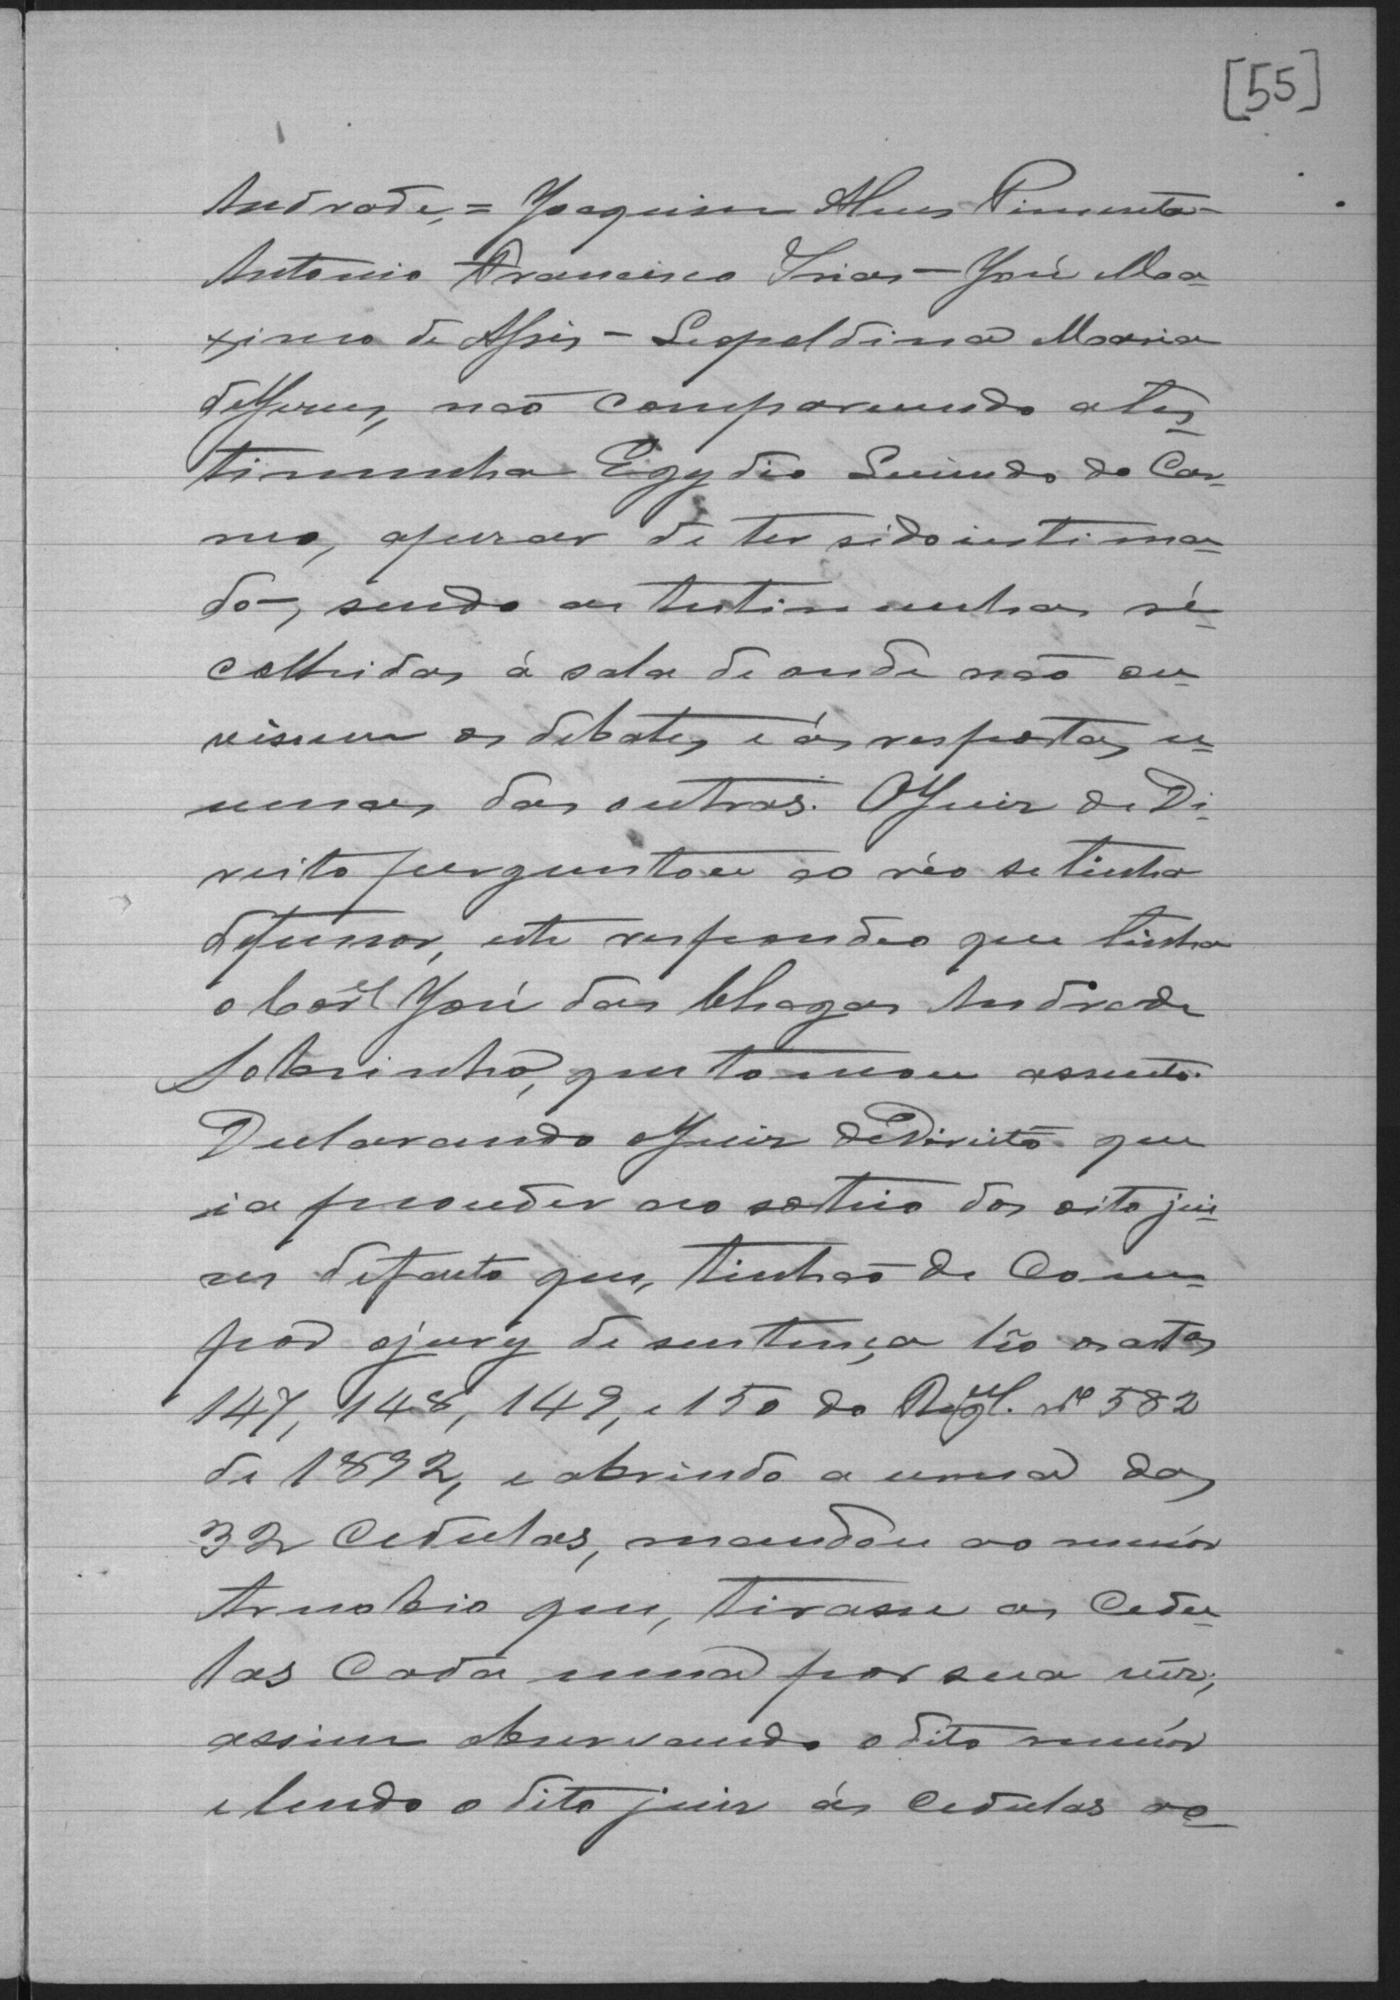 [55]
Andrade, = Joaquim Alves Pimenta -
Antonio Francisco Frias - José Ma=
ximo de Assis - Leopoldina Maria
de Jesus, não comparecendo a tes=
timunha Egydio Lucindo do Car=
mo, apezar de ter sido intima=
do -, sendo as testimunhas re=
colhidas á sala de onde não ou=
vissem os debates e ás respostas u=
umas das outras. O Juiz de Di=
reito perguntou ao réo se tinha
defensor, este respondeo que tinha
o Corel José das Chagas Andrade
Sobrinho, que tomou assento.
Declarando o Juiz de Direito que
ia proceder ao sorteio dos oito jui=
zes de facto que, tinhão de Com=
por o jury de sentença lêo os artos
147, 148, 149, e 150 do Regul. nº 582
de 1892, e abrindo a urna das
32 Cedulas, mandou ao menór
Arnobio que, tirasse as Cedu=
las Cada uma por sua vez,
assim observando o dito menór
e lendo o dito juiz ás Cedulas ao